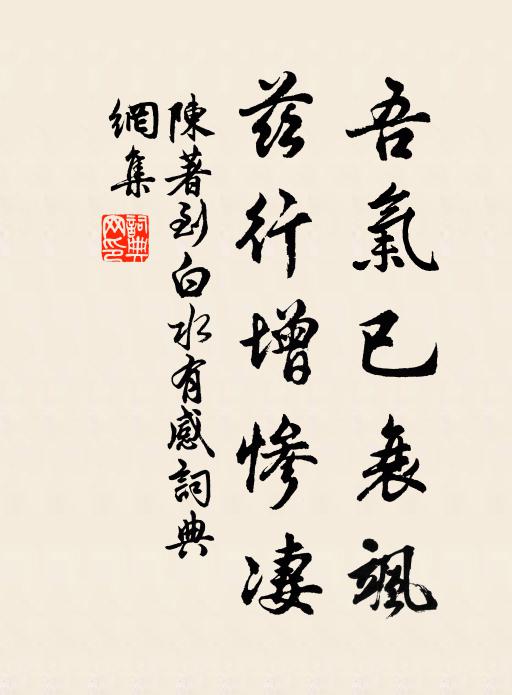 吾氣已衰颯
茲行增慘凄
陳著到白水有感詞典
網集
詞典网印